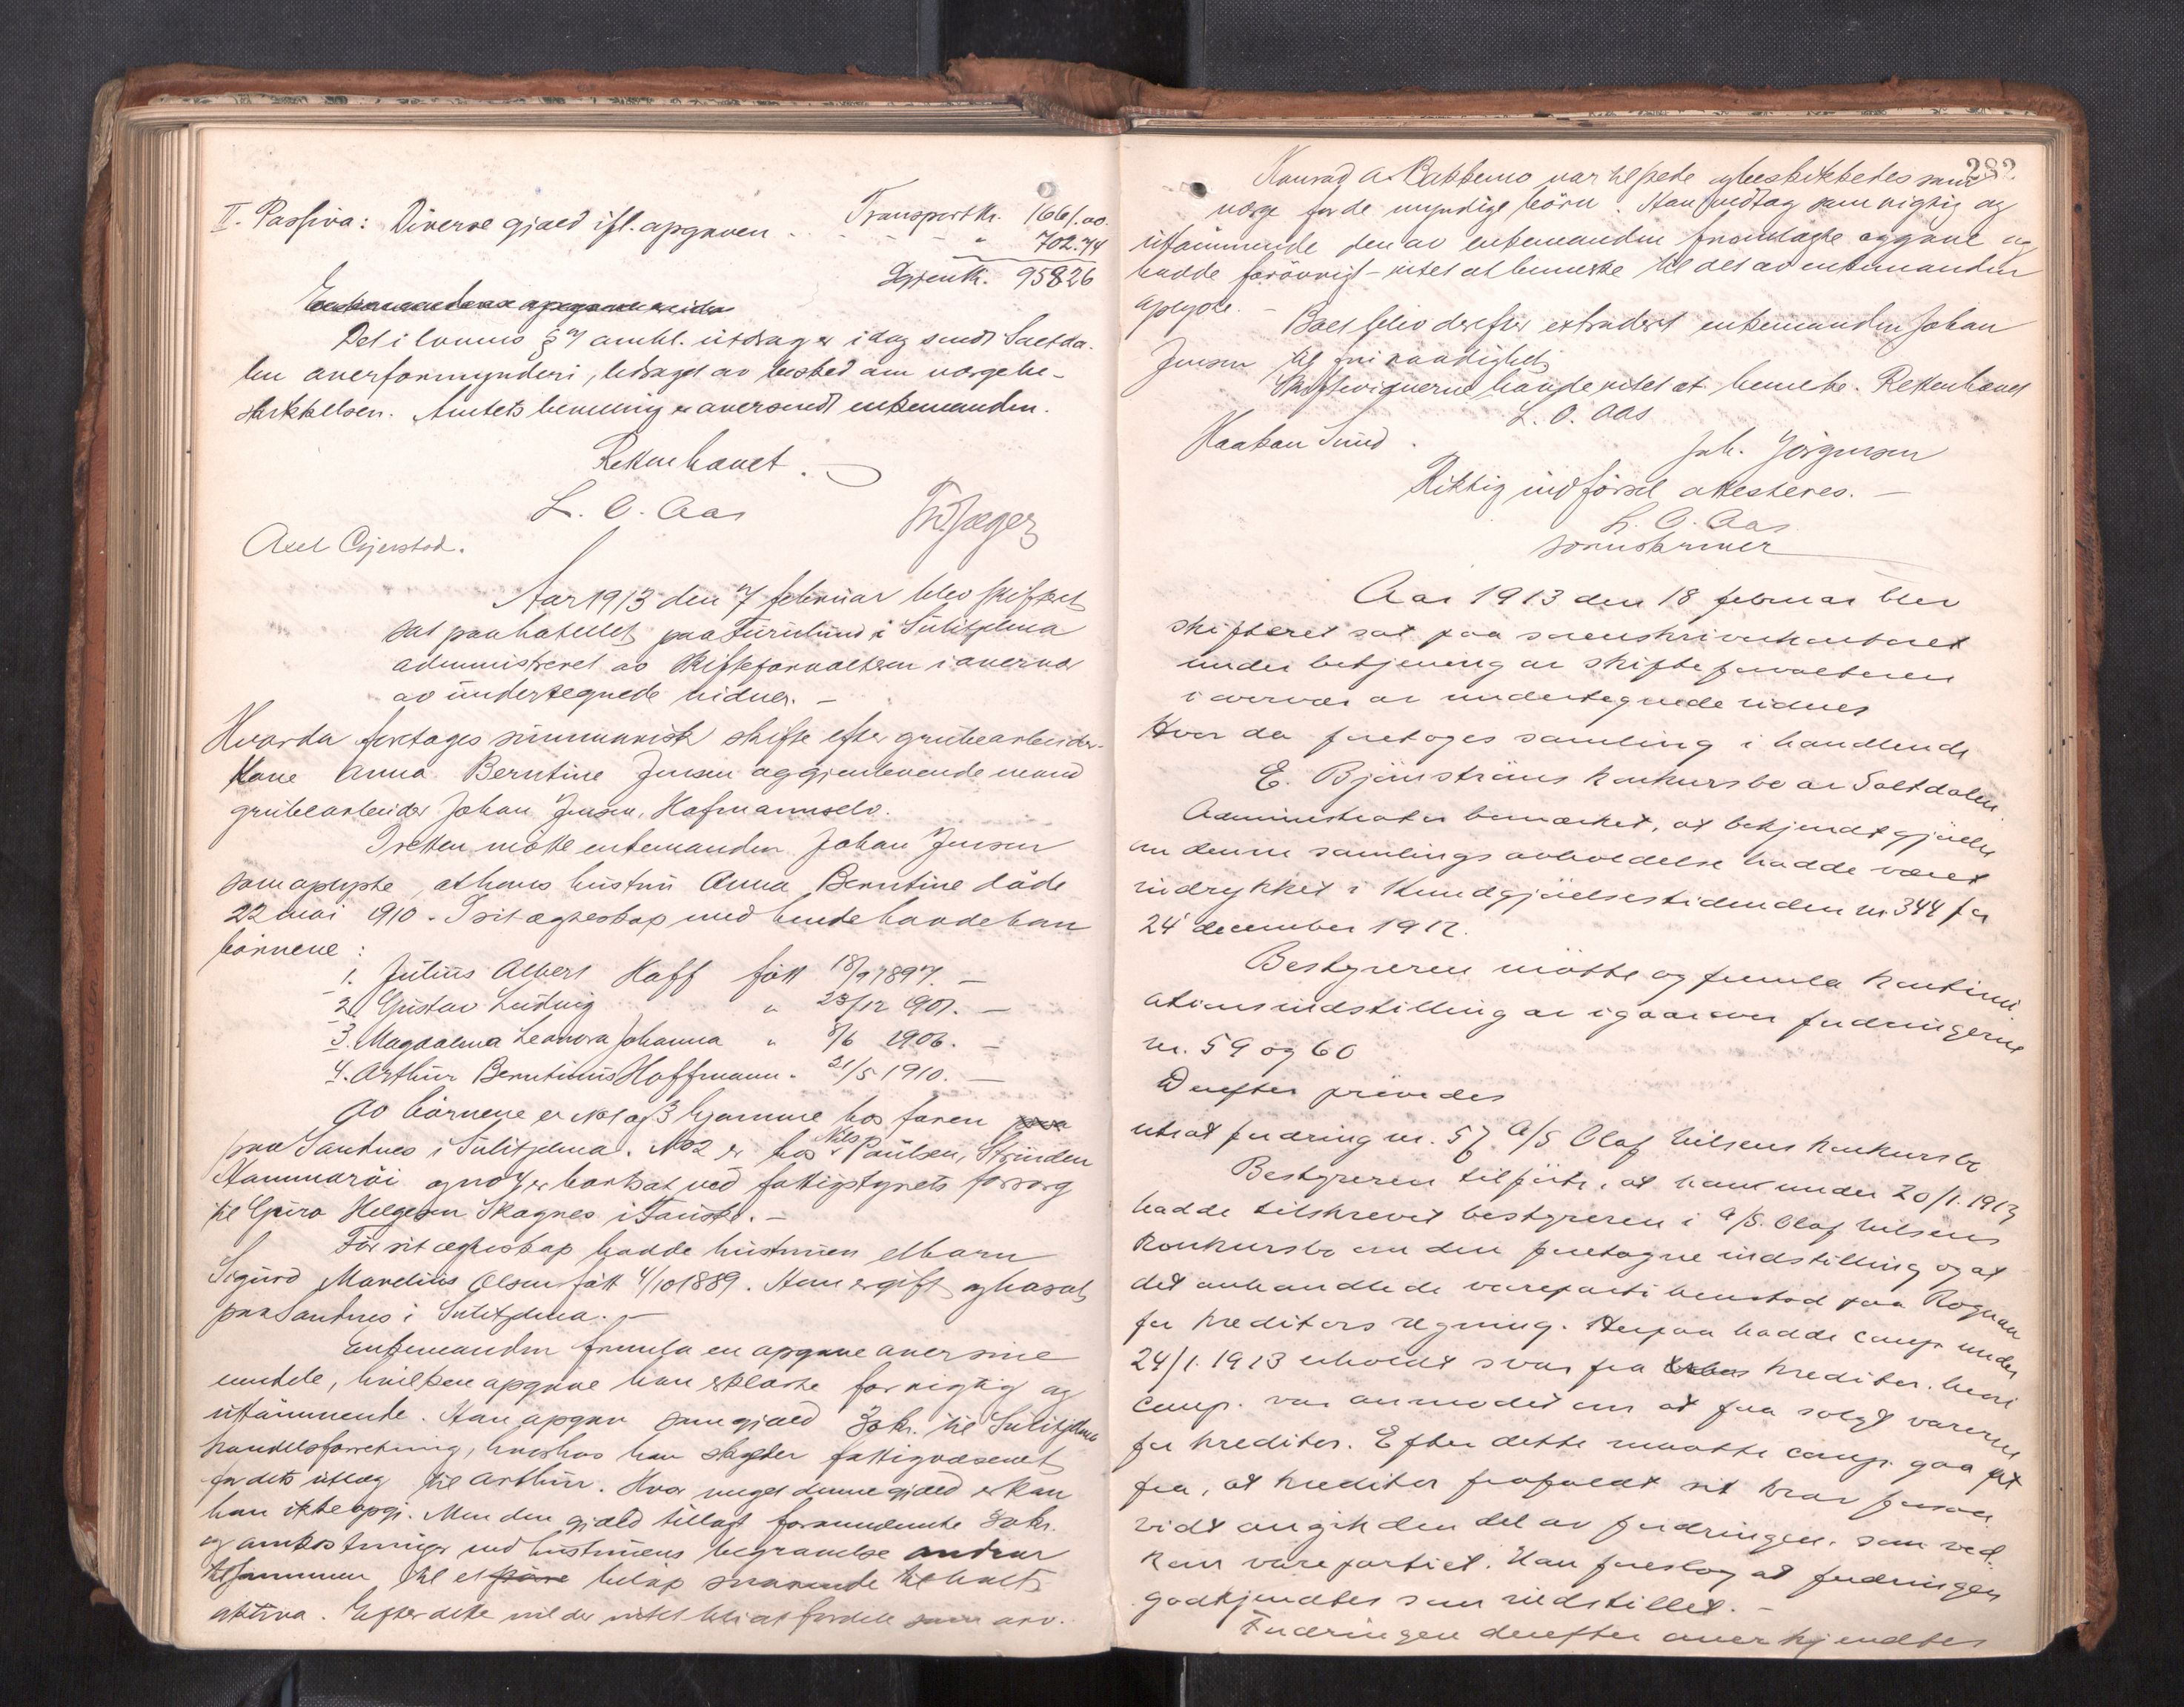 Transport kr. 1661.00.
II. Passiva: Diverse gjæld ifl. opgaven . . - - - " 702.74
Igjen kr. 958 26
Enkemandens opgave
Det i lovens § omhl. utdrag er idag sendt Saltda-
len overformynderi, ledsaget av besked om vergebe-
skikkelsen. Amtets bevilling er oversendt enkemanden.
Retten hævet.
L. O. Aas
Axel Gjerstad.
Aar 1913 den 7 februar blev skifteret
sat paa hotellet paa Furulund i Sulitjelma
administreret av skifteforvalteren i overvær
av undertegnede vidner. –
Hvorda foretages summarisk skifte efter grubearbeider-
kone Anna Berntine Jensen og gjenlevende mand
grubearbeider Johan Jensen, Hafmannselv.
I retten møtte enkemanden Johan Jensen
som oplyste, at hans hustru Anna Berntine døde
22 mai 1910. I sit ægteskap med hende havde han
børnene:
1. Julius Albert Hoff født 18/9 1897. –
2. Gustav Ludvig " 23/12 1901. –
3. Magdalena Leonora Johanna " 8/6 1906. –
4. Arthur Berntinius Hoffmann. " 21/5 1910. –
Av børnene er No 1 og 3 hjemme hos faren
paa Sandnes i Sulitjelma. No 2 er hos Nils Paulsen, Strinden
Hammarøi og no 4 er bortsat ved fattigstyrets forsorg
til Guro Helgesen Skagnes i Fauske. –
Før sit ægteskap hadde hustruen et barn
Sigurd Marelius Olsen født 4/10 1889. Han er gift og bosat
paa Sandnes i Sulitjelma. –
Enkemanden fremla en opgave over sine
midele, hvilken opgave han erklærte for rigtig og
uttømmende. Han opgav som gjæld 30 kr. til Sulitjelma
handelsforretning, hvorhos han skylder fattigvæsenet
for dets utlæg til Arthur. Hvor meget denne gjæld er kan
han ikke opgi. Men den gjæld tillagt forannævnte 30 kr.
og omkostninger ved hustruens begravelse andrar
tilsammen til et større beløp svarende til boets
aktiva. Efter dette vil der intet bli at fordele som arv.
282.
Konrad A. Bakkemo var tilstede og beskikkedes som
verge for de umyndige børn. Han vedtog som rigtig og
uttømmende den av enkemanden fremlagte opgave og
hadde forøvrigt intet at bemerke til det av enkemanden
oplyste. –
Boet blev derefter extradert enkemanden Johan
Jensen til fri raadighet.
Skiftevidnerne havde intet at bemerke. Retten hævet
L. O. Aas
Haakon Sund.
Joh. Jörgensen
Riktig indførsel attesteres. –
L. O. Aas
sorenskriver
Aar 1913 den 18 februar blev
skifteret sat paa sorenskriverkontoret
under betjening av skifteforvalteren
i overvær av undertegnede vidner
Hvor da foretoges samling i handlende
E. Bjørnstrøms konkursbo av Saltdalen.
Administrator bemærket, at bekjendtgjørelse
om denne samlings avholdelse hadde været
indrykket i Kundgjørelsestidenden nr. 344 for
24 december 1912.
Bestyreren møtte og fremla kontinu-
ationsindstilling av igaar over fordringerne
nr. 59 og 60
Derefter prøvedes
utsat fordring nr. 57 A/S Olaf Nilsens konkursbo
Bestyreren tilførte, at han under 20/1. 1913
hadde tilskrevet bestyreren i A/S. Olaf Nilsens
konkursbo om den foretagne indstilling og at
det omhandlede vareparti henstod paa Rognan
for kreditors regning. Herpaa hadde comp. under
24/1. 1913 erholdt svar fra kreditor. hvori
comp. var anmodet om at faa solgt varerne
for kreditor. Efter dette maatte comp. gaa ut
fra, at kreditor frafaldt sit krav forsaa-
vidt angik den del av fordringen, som ved-
kom varepartiet. Han foreslog at fordringen
godkjendtes som indstillet. –
Fordringen derefter anerkjendtes